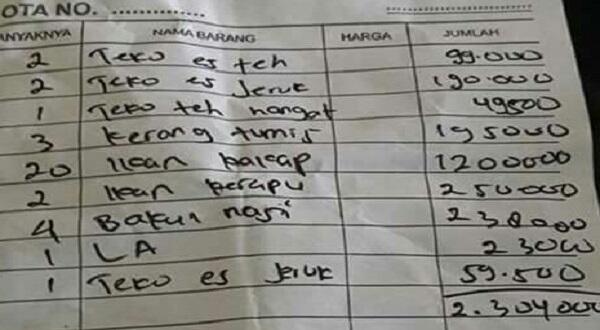 OTA NO. ..............
ANYAKNYA NAMA BARANG HARGA JUMLAH
2 Teko es teh 99.000
2 Teko es Jeruk 190.000
1 Teko teh hangat 49500
3 Kerang tumis 195000
20 Ikan bakap 1200000
2 Ikan kerapu 250000
4 Bakul nasi 238000
1 LA 23000
1 Teko es Jeruk 59.500
2.304000